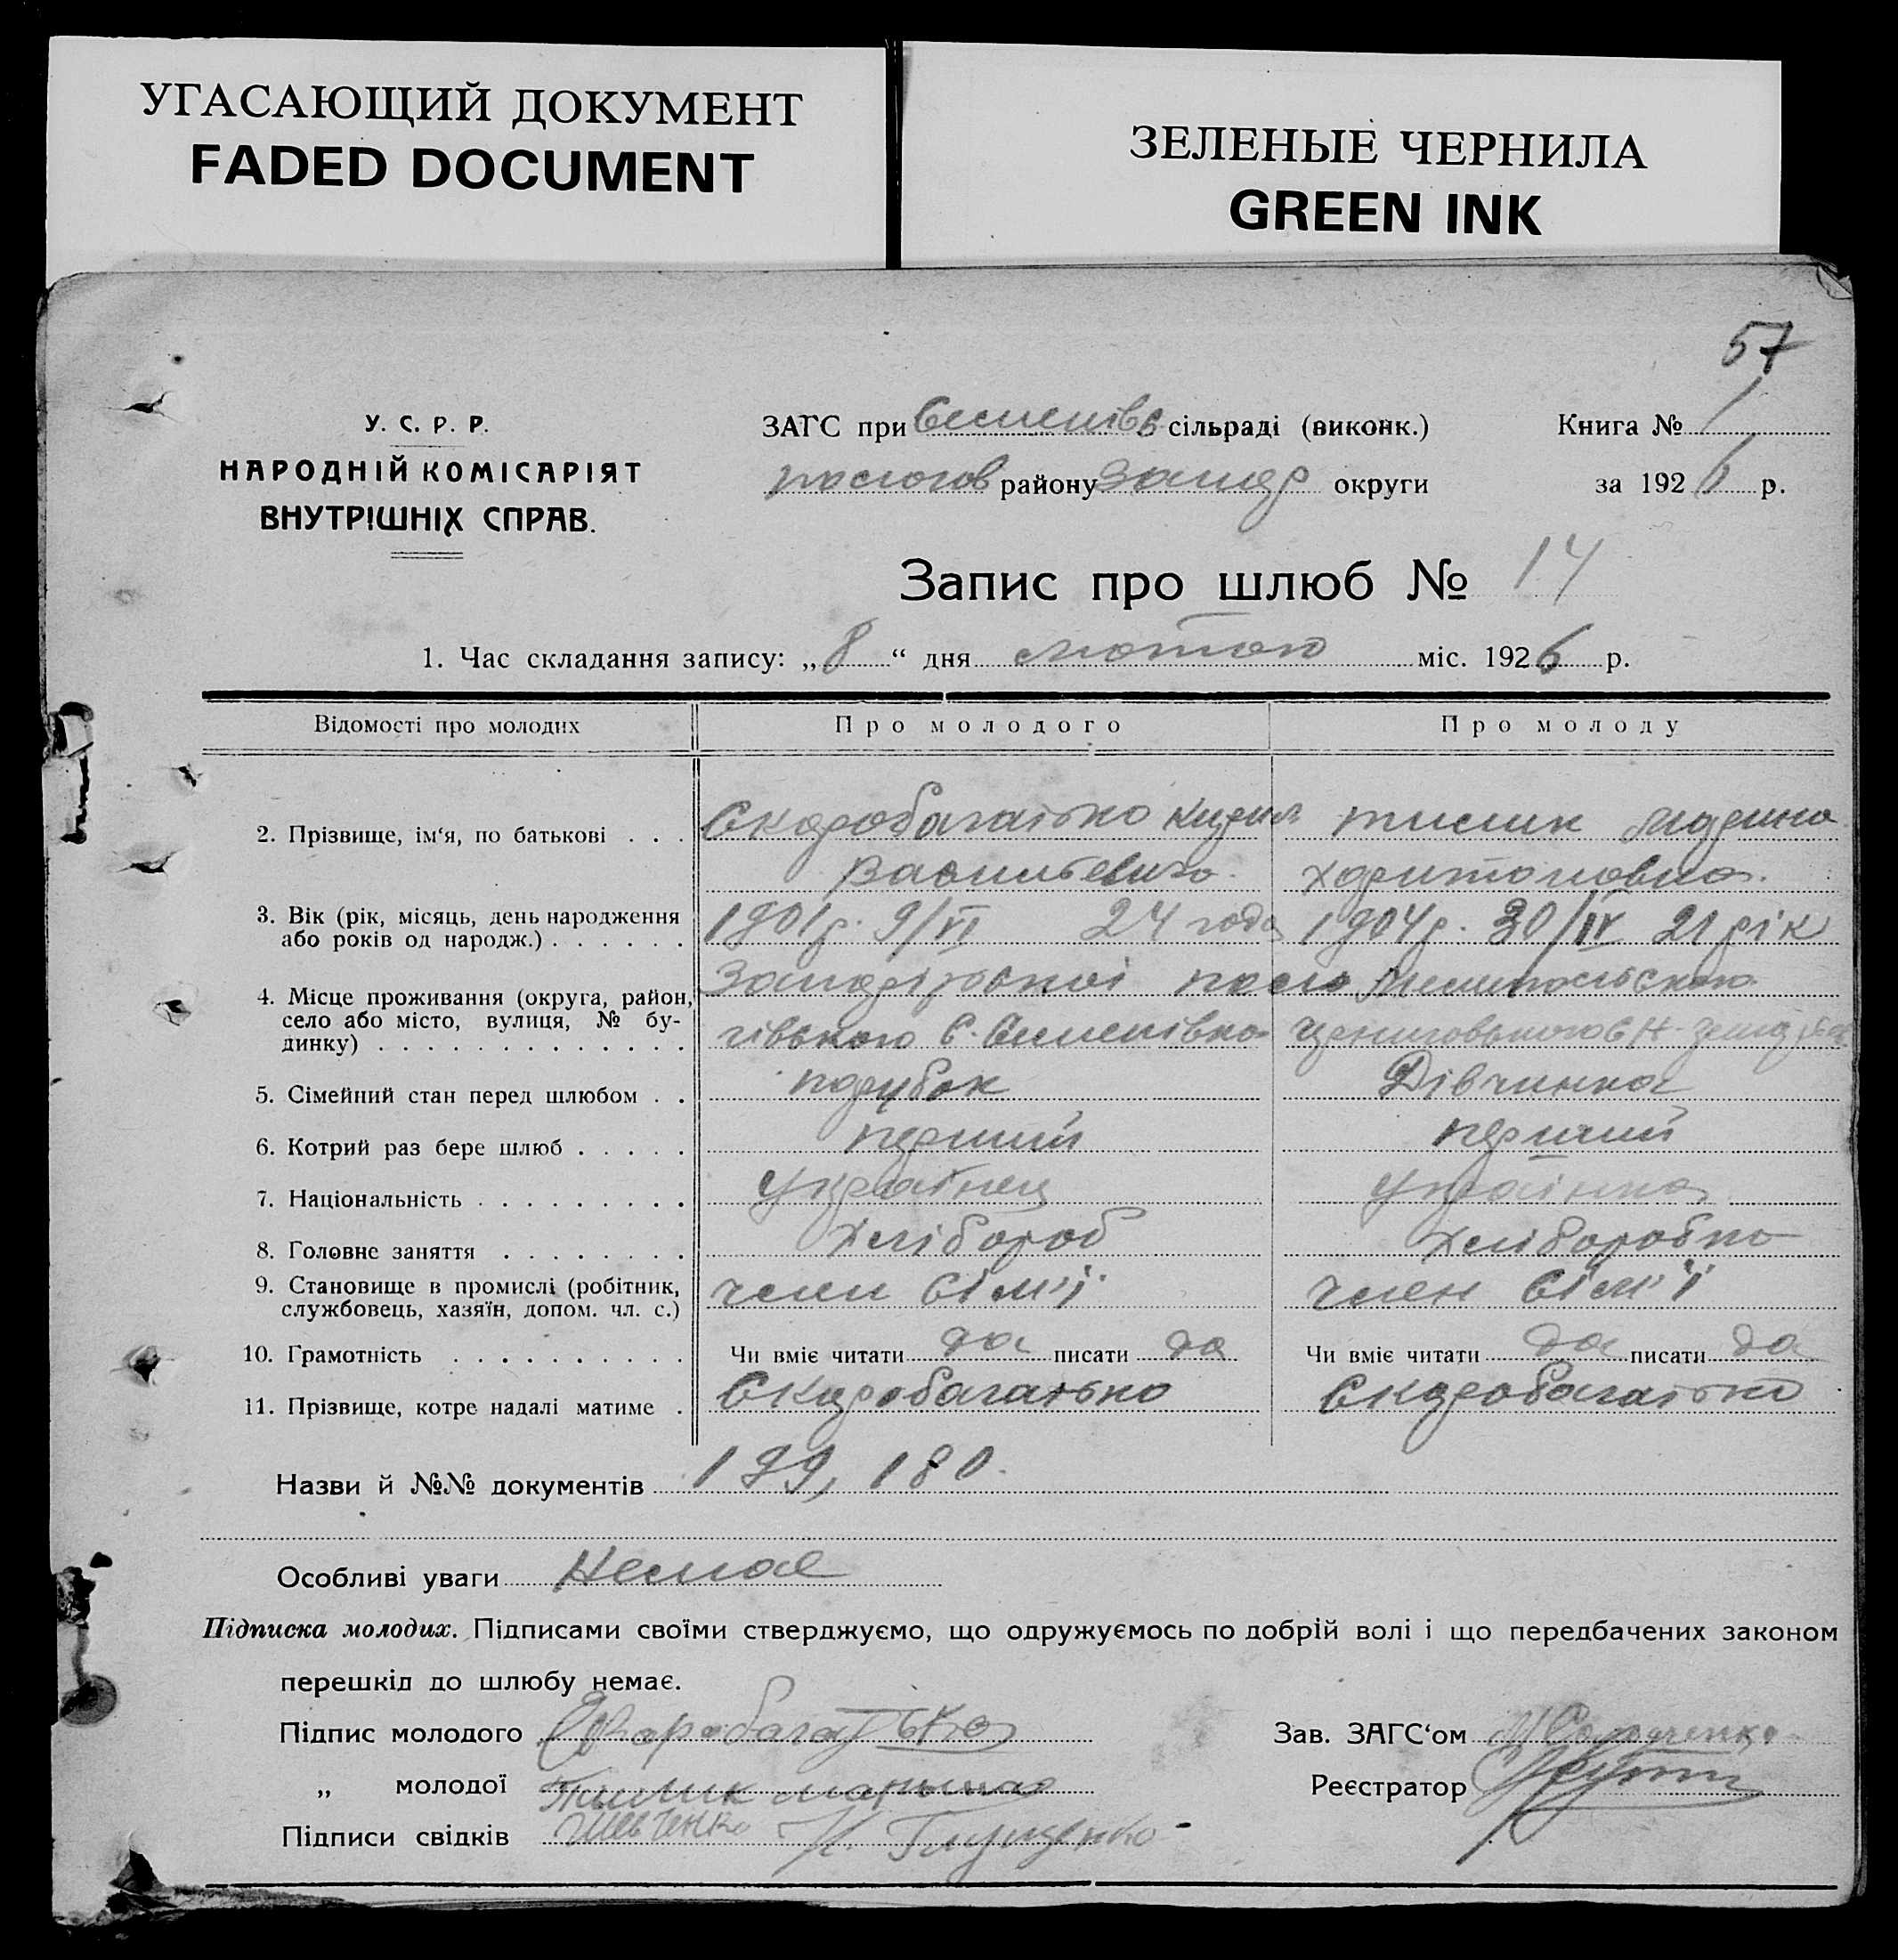 УГАСАЮЩИЙ ДОКУМЕНТ
FADED DOCUMENT
ЗЕЛЕНЫЕ ЧЕРНИЛА
GREEN INK
57
У. С. Р. Р.
НАРОДНІЙ КОМІСАРІЯТ
ВНУТРІШНІХ СПРАВ.
ЗАГС при Семенівс сільраді (виконк.)
району Запор округи
Книга № 1
за 1926 р.
Запис про шлюб № 14
1. Час складання запису: „8“ дня лютого міс. 1926 р.
Відомості про молодих Про молодого Про молоду
2. Прізвище, ім‘я, по батькові . . . Скоробагатько Кирил Тислик Марина
Васильевич Харитоновна.
3. Вік (рік, місяць, день народження
або років од народж.) . . . . . . 1901р. 9/VI 24 года 1904р. 30/IV 21 рік
4. Місце проживання (округа, район,
село або місто, вулиця, № бу-
динку) . . . . . . . . . . . . . . гівського С. Семенівка
5. Сімейний стан перед шлюбом . . парубок Дівчинка
6. Котрий раз бере шлюб . . . . . перший перший
7. Національність . . . . . . . . . Українец Українка
8. Головне заняття . . . . . . . . Хлібороб Хліборобка
9. Становище в промислі (робітник,
службовець, хазяїн, допом. чл. с.) член сім'ї член сім'ї
10. Грамотність . . . . . . . . . . Чи вміє читати да писати да Чи вміє читати да писати да
11. Прізвище, котре надалі матиме . Скоробагатько Скоробагатько
Назви й №№ документів 179, 180.
Особливі уваги Немає
Підписка молодих. Підписами своїми стверджуємо, що одружуємось по добрій волі і що передбачених законом
перешкід до шлюбу немає.
Підпис молодого Скоробагатько Зав. ЗАГС‘ом
„ молодої Тислик Реєстратор
Підписи свідків Шевченко Глущенко